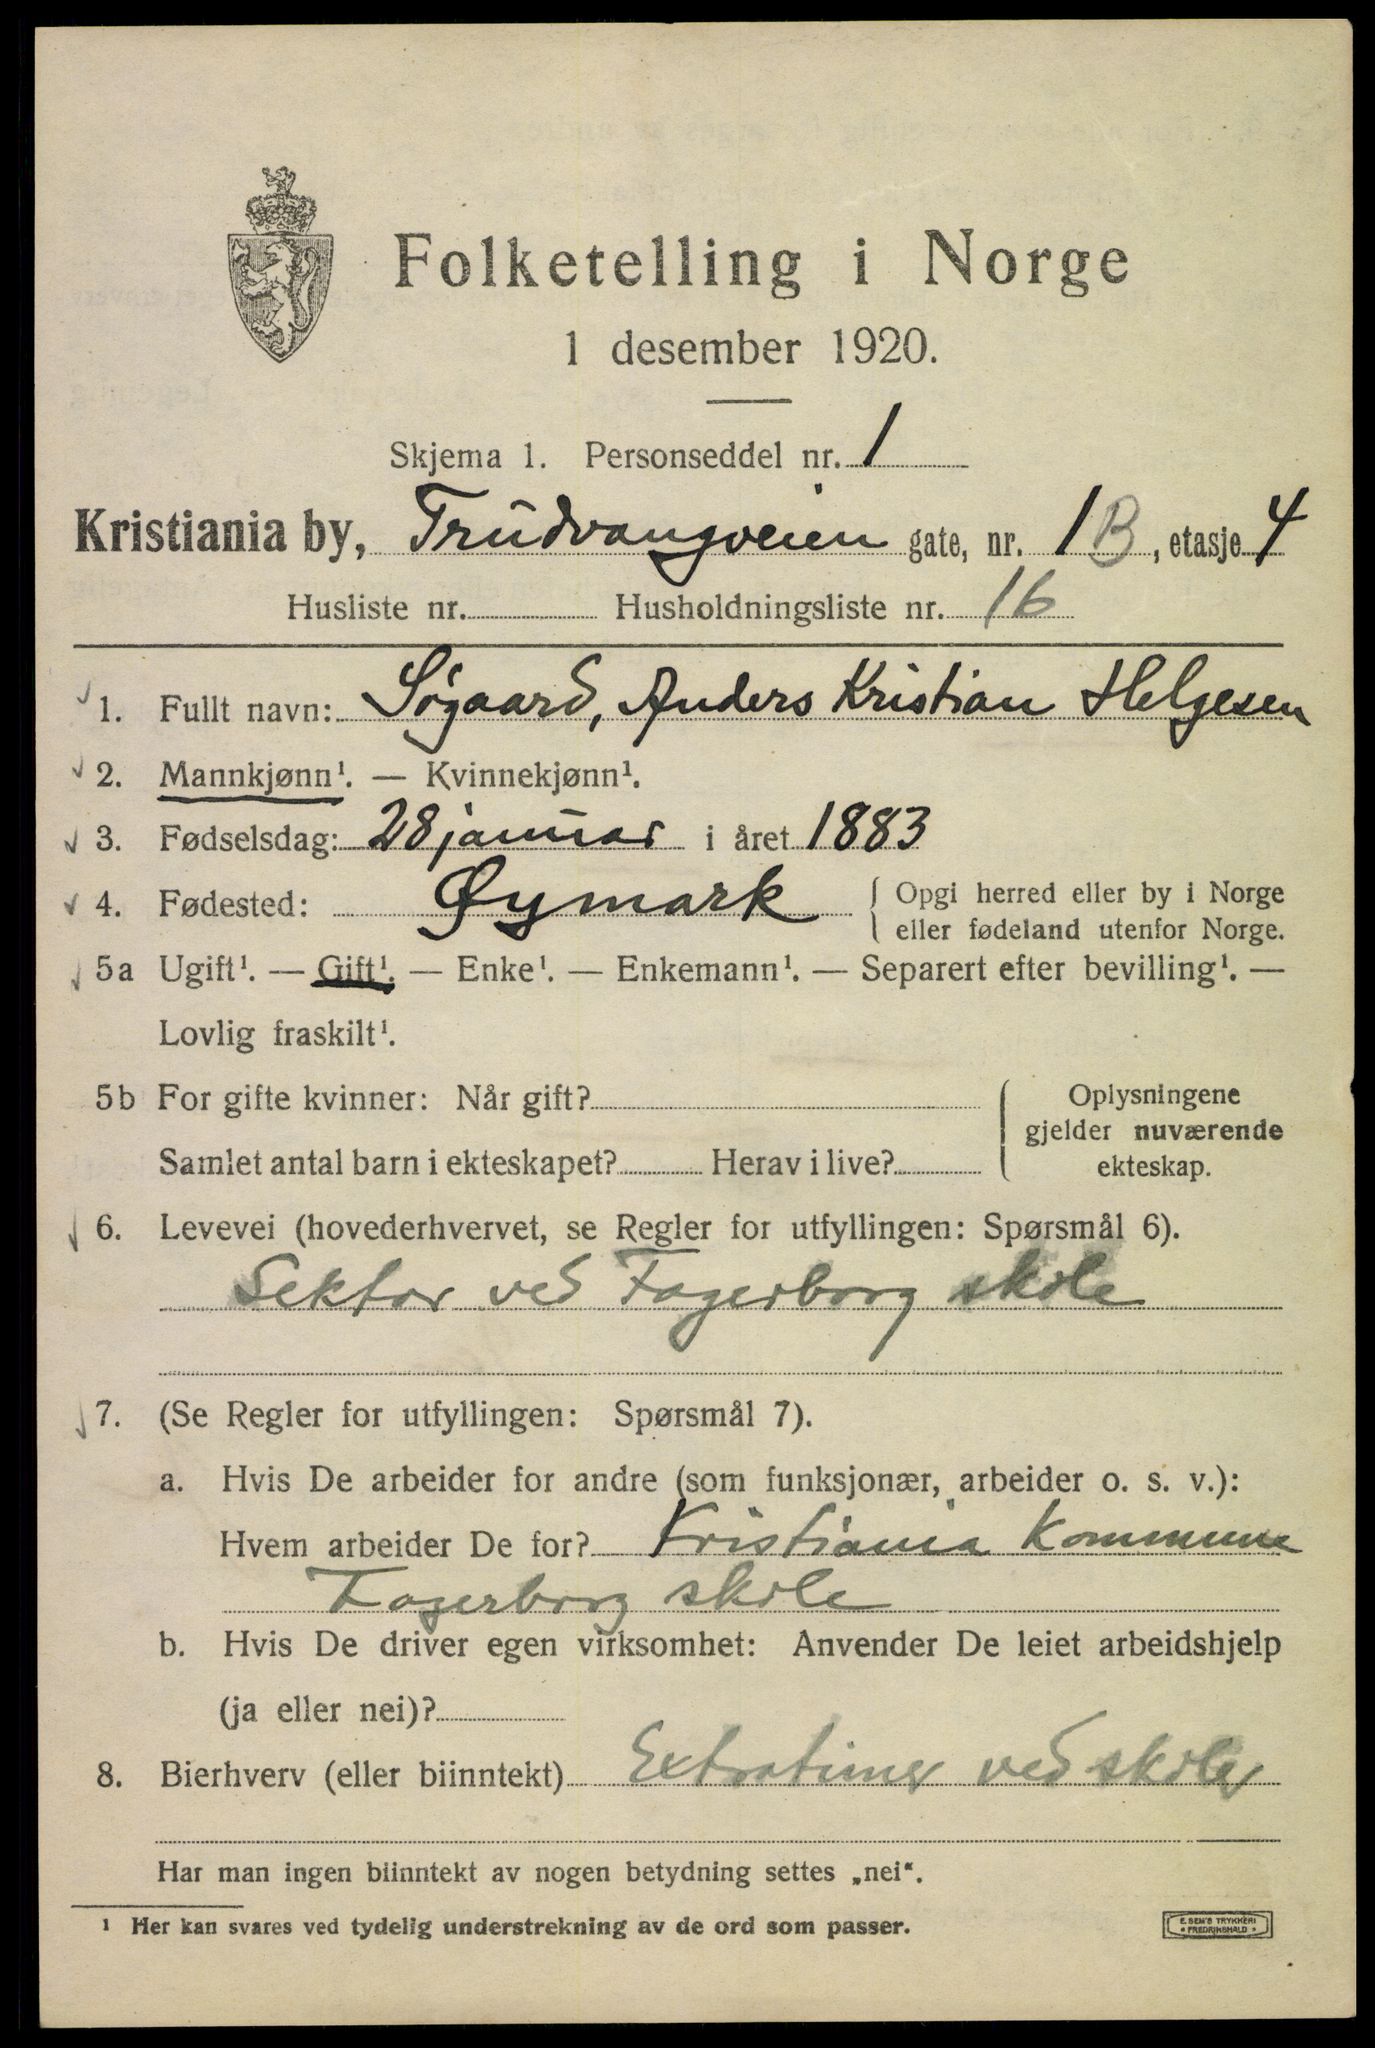 Folketelling i Norge
1 desember 1920.
Skjema 1. Personseddel nr. 1
Kristiania by, Trudvangveien gate, nr. 1B, etasje 4
Husliste nr. Husholdningsliste nr. 16
1. Fullt navn: Søgaard, Anders Kristian Helgesen
2. Mannkjønn¹. — Kvinnekjønn¹.
3. Fødselsdag: 28 januar i året 1883
4. Fødested: Øymark { Opgi herred eller by i Norge
eller fødeland utenfor Norge.
5a Ugift¹. — Gift¹. — Enke¹. — Enkemann¹. — Separert efter bevilling¹. —
Lovlig fraskilt¹.
5b For gifte kvinner: Når gift?
Samlet antal barn i ekteskapet? Herav i live?
{ Oplysningene
gjelder nuværende
ekteskap.
6. Levevei (hovederhvervet, se Regler for utfyllingen: Spørsmål 6).
Lektor ved Fagerborg skole
7. (Se Regler for utfyllingen: Spørsmål 7).
a. Hvis De arbeider for andre (som funksjonær, arbeider o. s. v.):
Hvem arbeider De for? Kristiania Kommune
Fagerborg skole
b. Hvis De driver egen virksomhet: Anvender De leiet arbeidshjelp
(ja eller nei)?
8. Bierhverv (eller biinntekt) Extratimer ved skoler
Har man ingen biinntekt av nogen betydning settes „nei“.
¹ Her kan svares ved tydelig understrekning av de ord som passer.
E. SEM'S TRYKKERI
FREDRIKSHALD